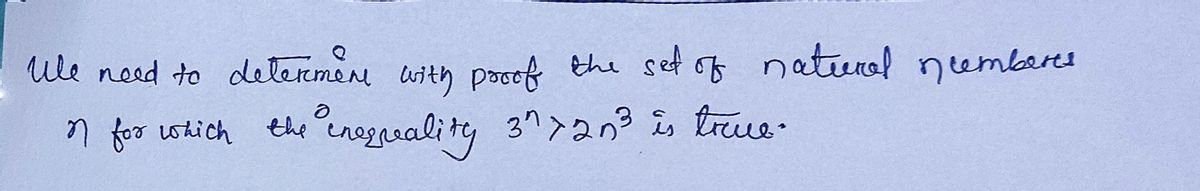 We need to determine with proof the set of natural numbers
n for which the inequality 3ⁿ > 2n³ is true.